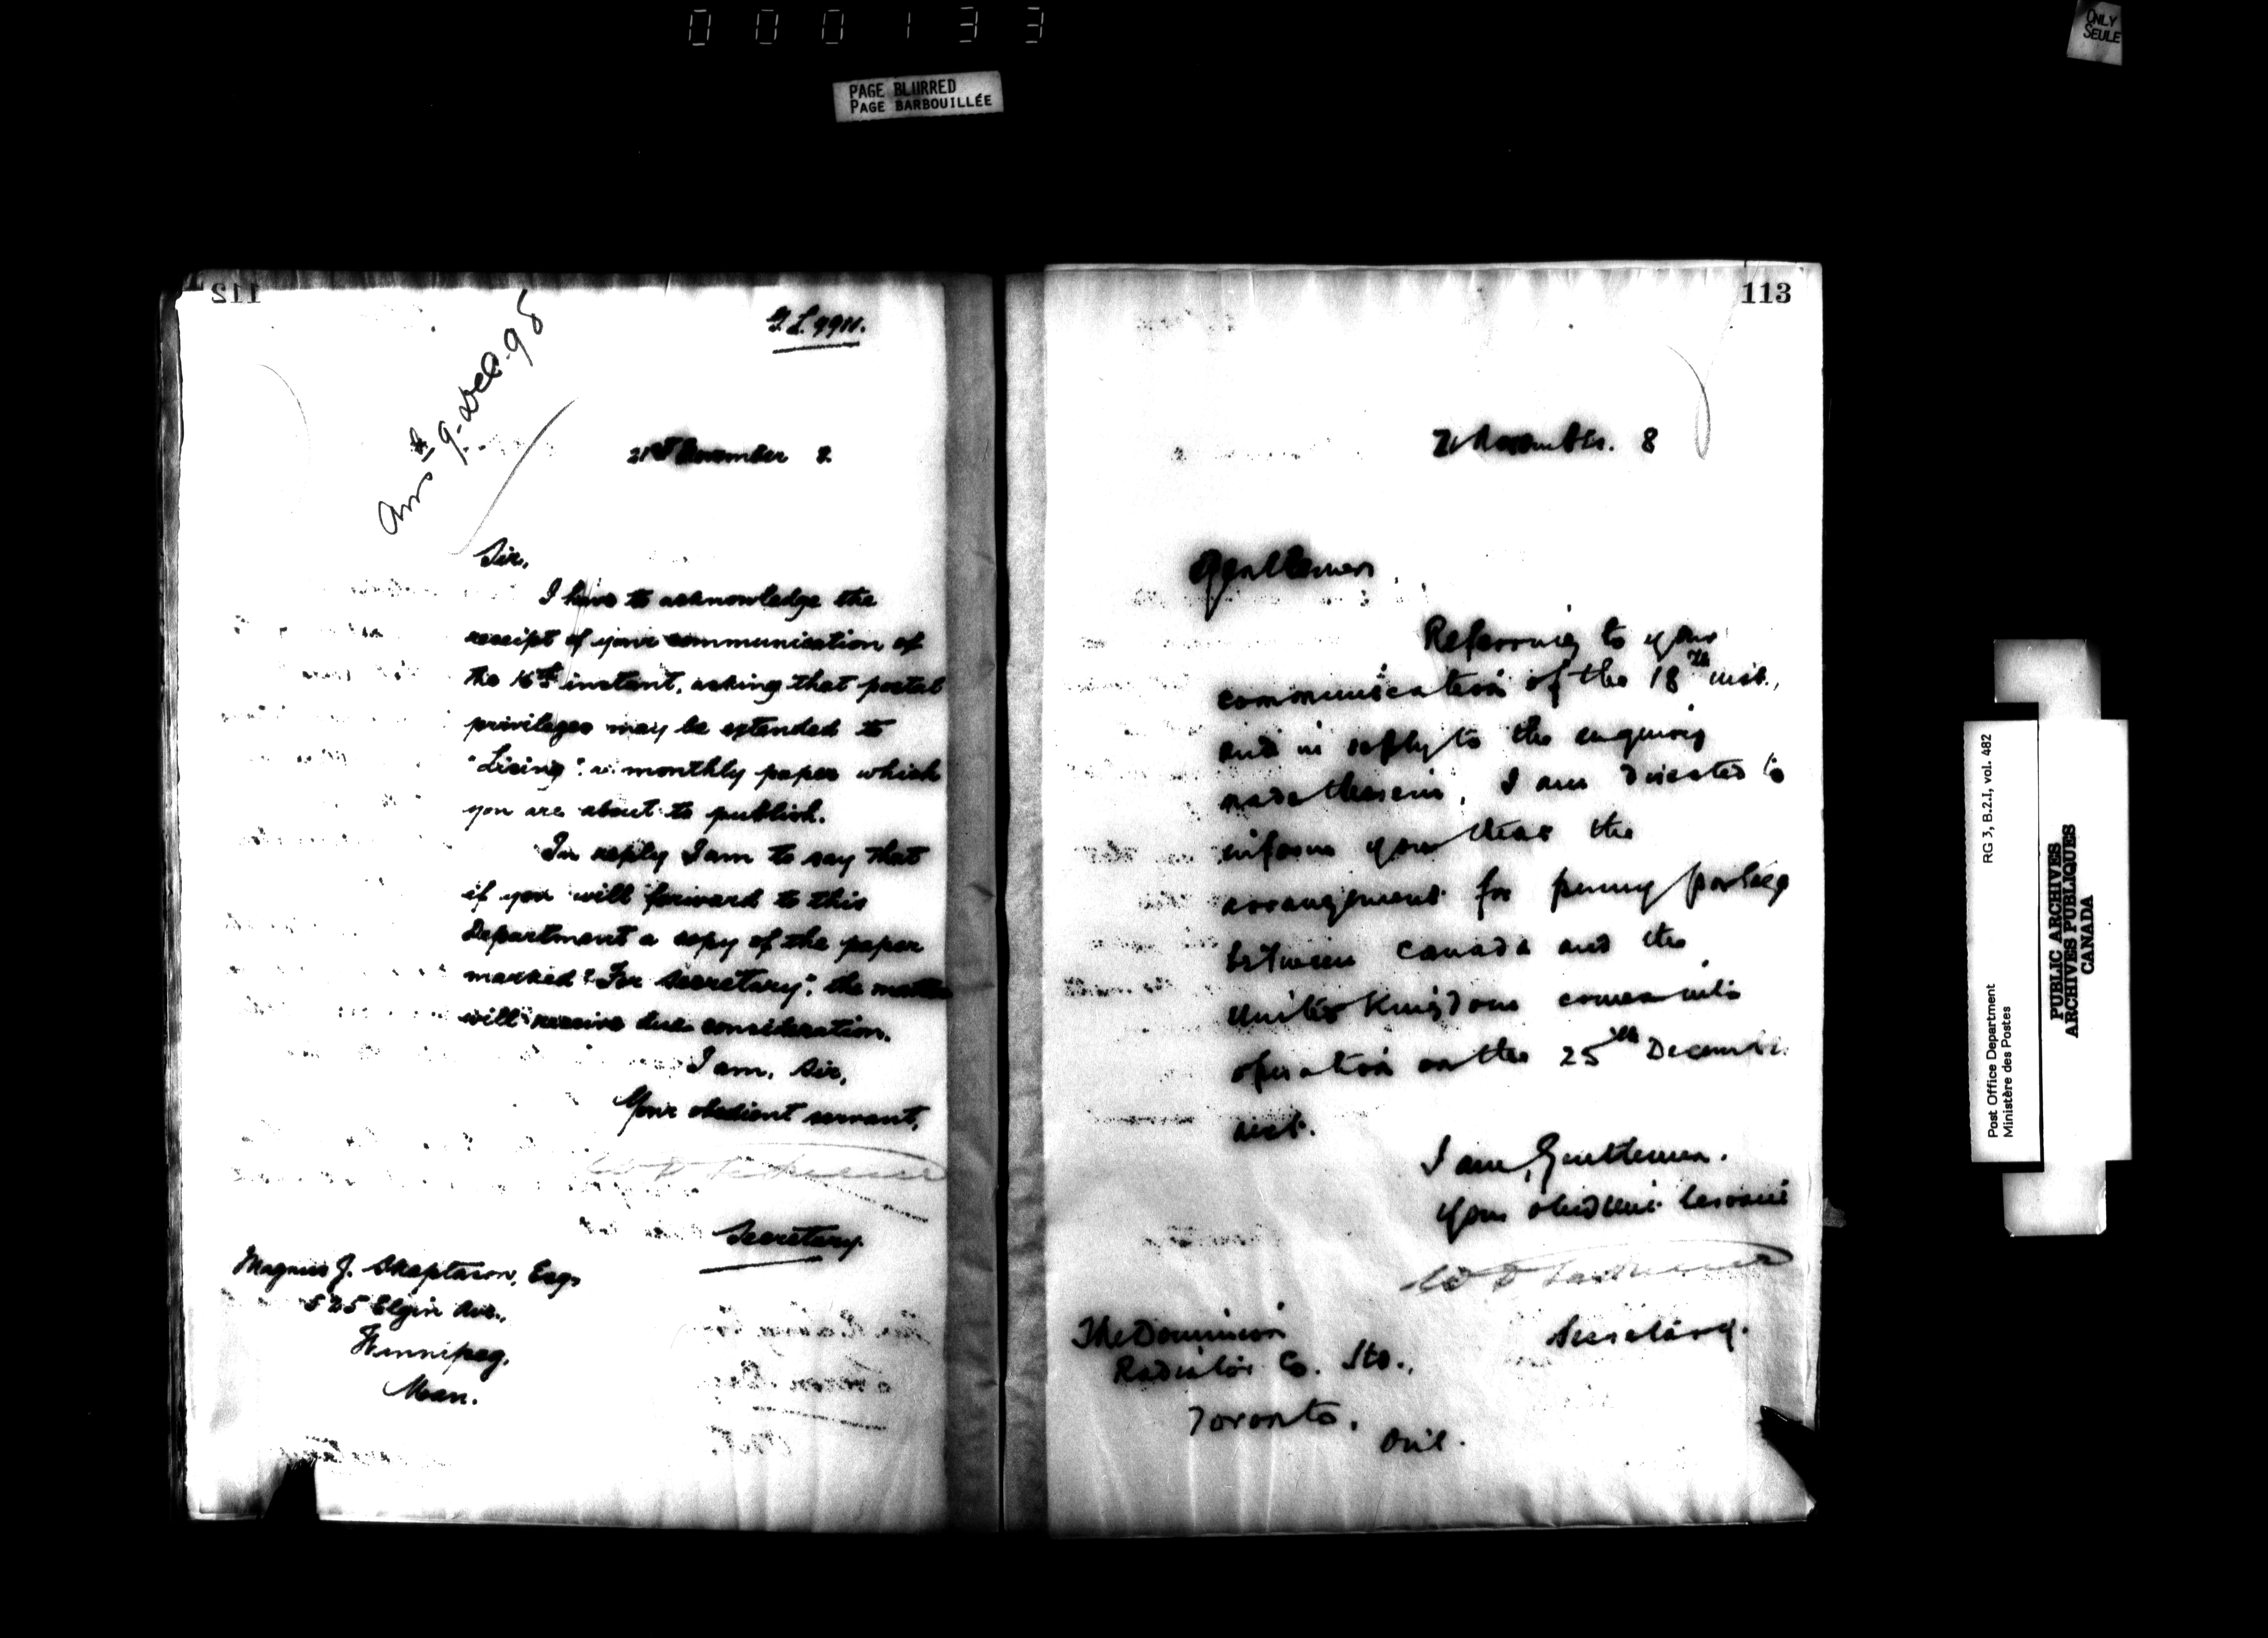 000133
PAGE BLURRED
PAGE BARBOUILLÉE
ONLY
SEULE
112
G.L. 9911.
Ans^d 9- Dec. 98
21st November 8.
Sir,
I have to acknowledge the
receipt of your communication of
the 16th instant, asking that postal
privileges may be extended to
"Lising": a monthly paper which
you are about to publish.
In reply I am to say that
if you will forward to this
Department a copy of the paper
marked "For Secretary", the matter
will receive due consideration.
I am, Sir,
Your obedient servant,
Secretary.
Magnus J. Skaptason, Esq.
525 Elgin Ave.,
Winnipeg,
Man.
113
21 November. 8
Gentlemen,
Referring to your
communication of the 18th inst.,
and in reply to the enquiry
made therein, I am directed to
inform you that the
arrangement for penny postage
between Canada and the
United Kingdom comes into
operation on the 25th December
next.
I am, Gentlemen.
Your obedient servant
Secretary.
The Dominion
Radiator Co. Ltd.,
Toronto,
Ont.
Post Office Department
Ministère des Postes
RG 3, B.2.I, vol. 482
PUBLIC ARCHIVES
ARCHIVES PUBLIQUES
CANADA